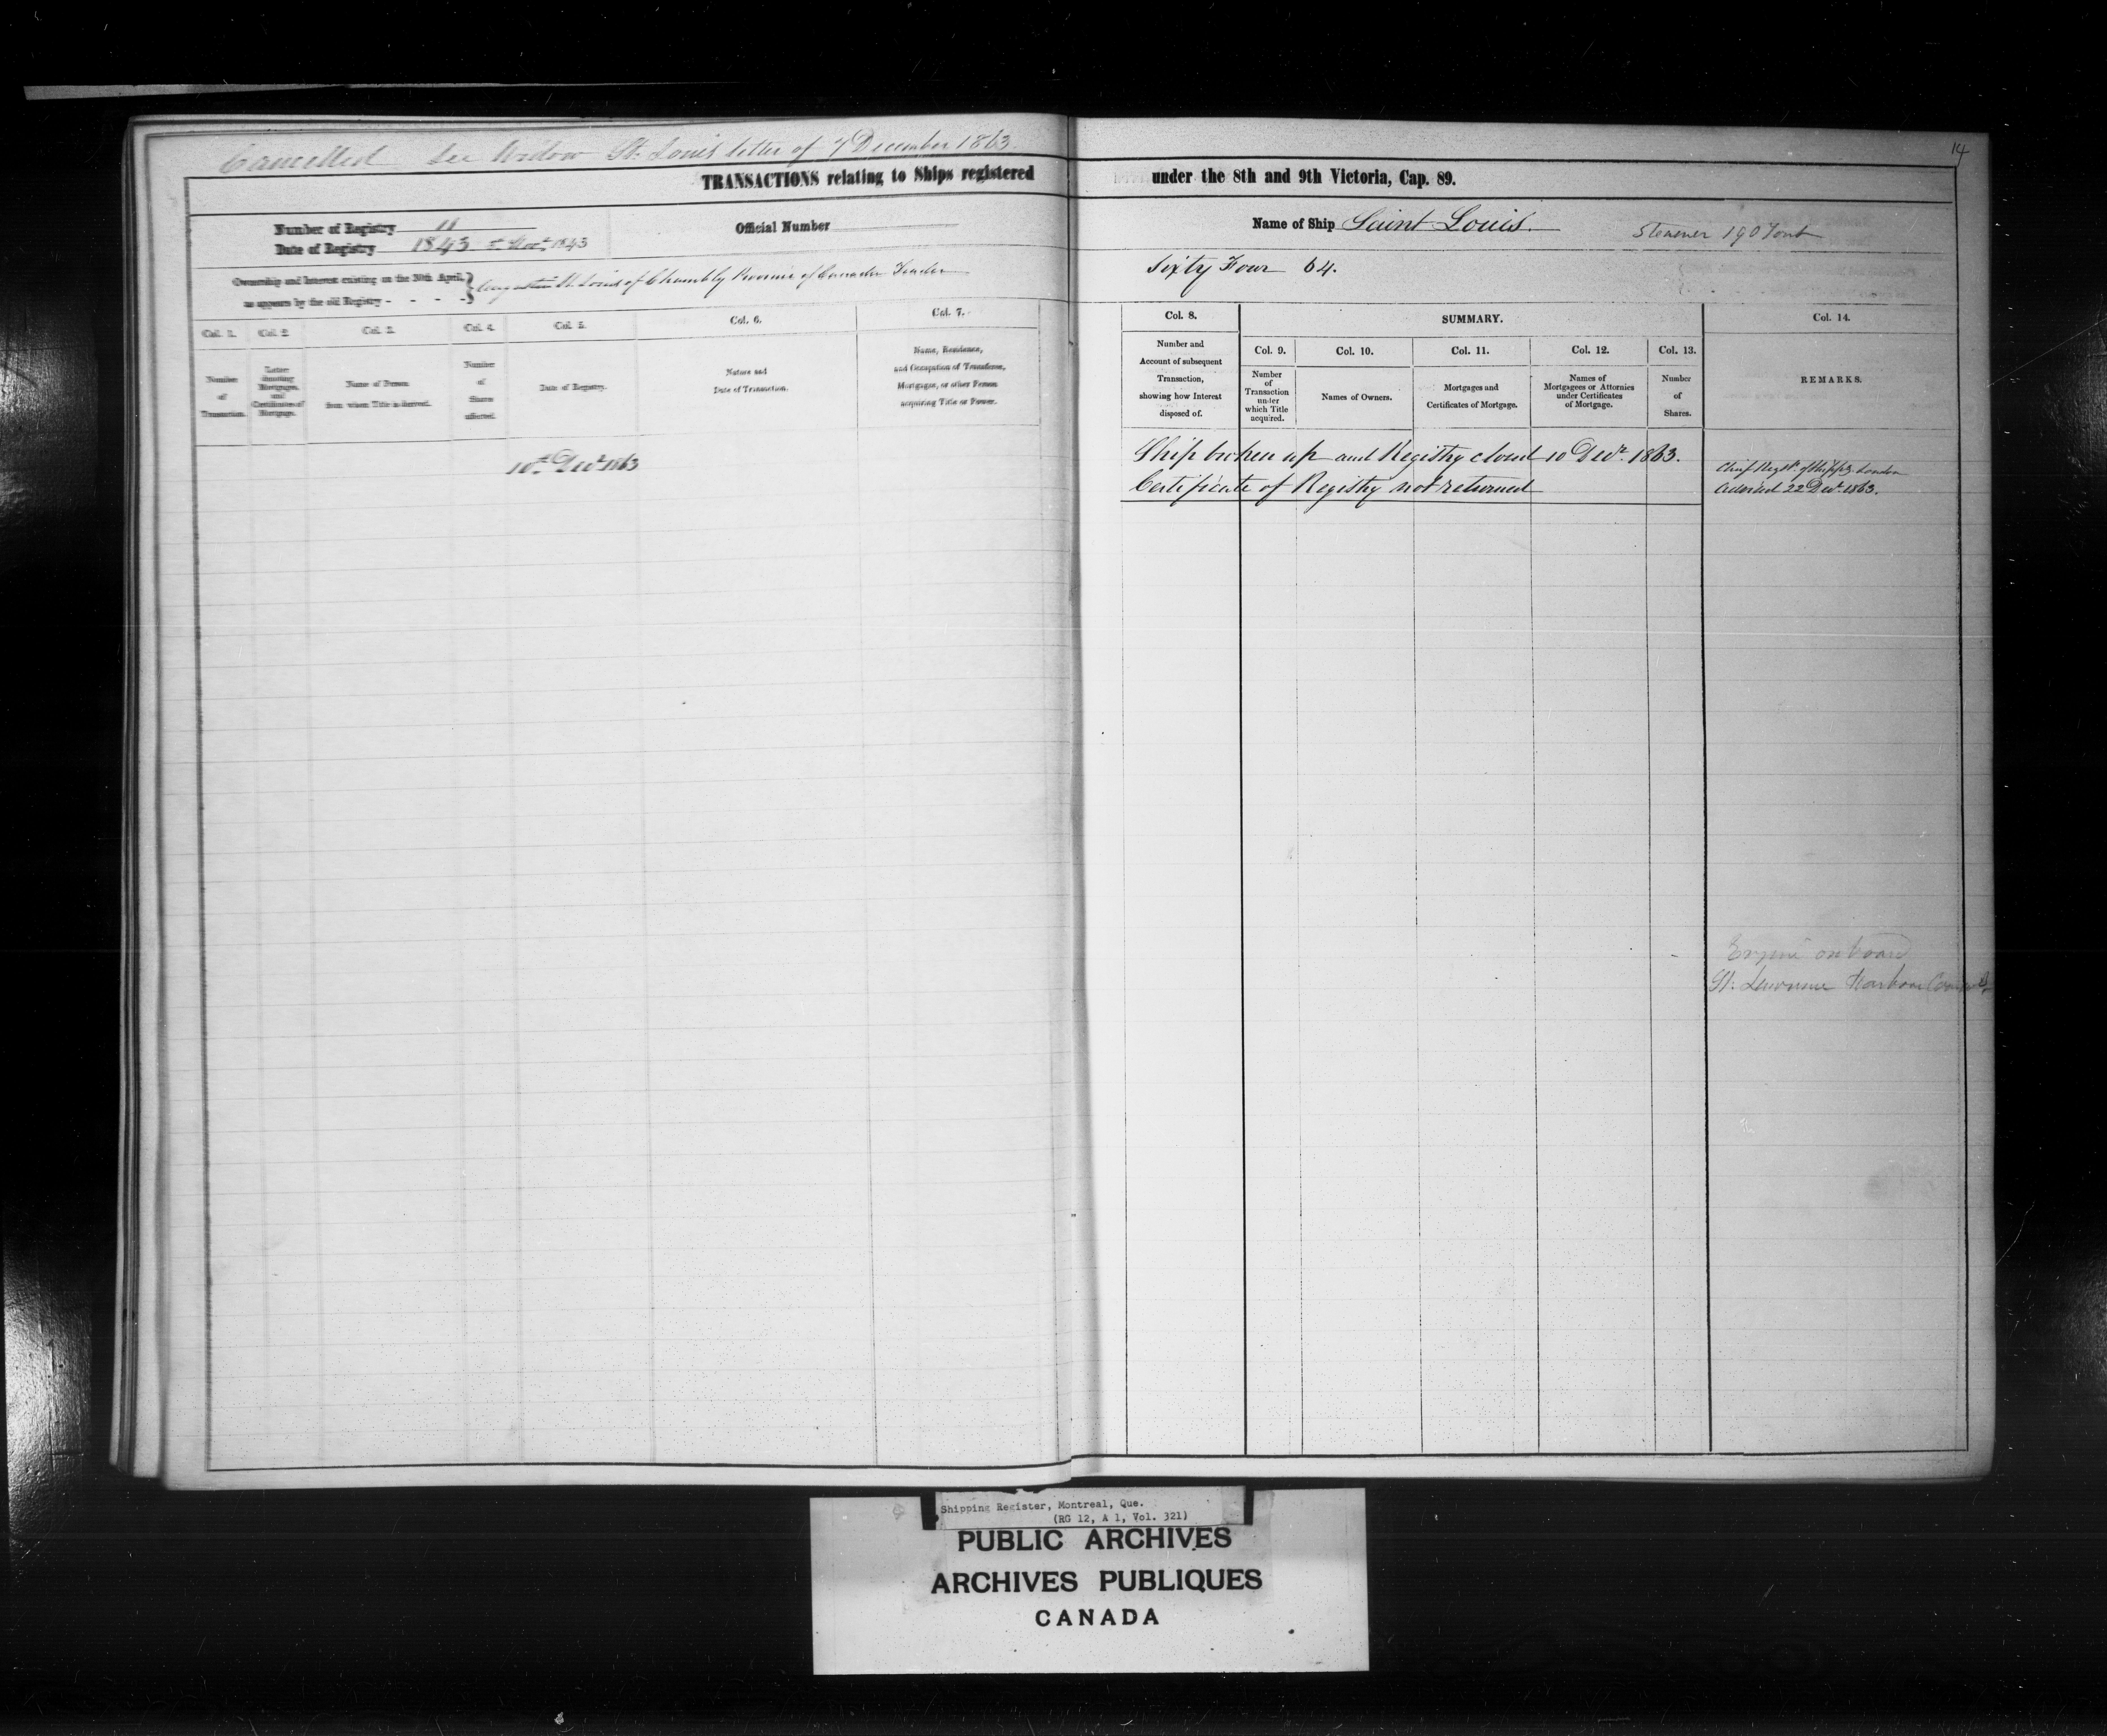 Cancelled see Widow St. Louis letter of 7 December 1863.
14
TRANSACTIONS relating to Ships registered under the 8th and 9th Victoria, Cap. 89.
Number of Registry 11
Official Number
Name of Ship Saint Louis.
Steamer 190 Tons
Date of Registry 1843 1843
Ownership and Interest existing on the 30th April,
as appears by the old Registry - - - -
St. Louis of Chambly Province of Canada Trader
Sixty Four 64.
Col. 1.
Col. 2.
Col. 3.
Col. 4.
Col. 5.
Col. 6.
Col. 7.
Col. 8.
SUMMARY.
Col. 14.
Col. 9.
Col. 10.
Col. 11.
Col. 12.
Col. 13.
Number
of
Transaction.
Letter
denoting
Mortgages,
and
Certificates of
Mortgage.
Name of Person
from whom Title is derived.
Number
of
Shares
affected.
Date of Registry.
Nature and
Date of Transaction.
Name, Residence,
and Occupation of Transferee,
Mortgagee, or other Person
acquiring Title or Power.
Number and
Account of subsequent
Transaction,
showing how Interest
disposed of.
Number
of
Transaction
under
which Title
acquired.
Names of Owners.
Mortgages and
Certificates of Mortgage.
Names of
Mortgagees or Attornies
under Certificates
of Mortgage.
Number
of
Shares.
REMARKS.
10th Decr. 1863
Ship broken up and Registry closed 10 Decr. 1863.
Certificate of Registry not returned
Chief Regstr. of Shippg London
Advised 22 Decr. 1863.
Engine on board
St. Lawrence Harbour
Shipping Register, Montreal, Que.
(RG 12, A 1, Vol. 321)
PUBLIC ARCHIVES
ARCHIVES PUBLIQUES
CANADA